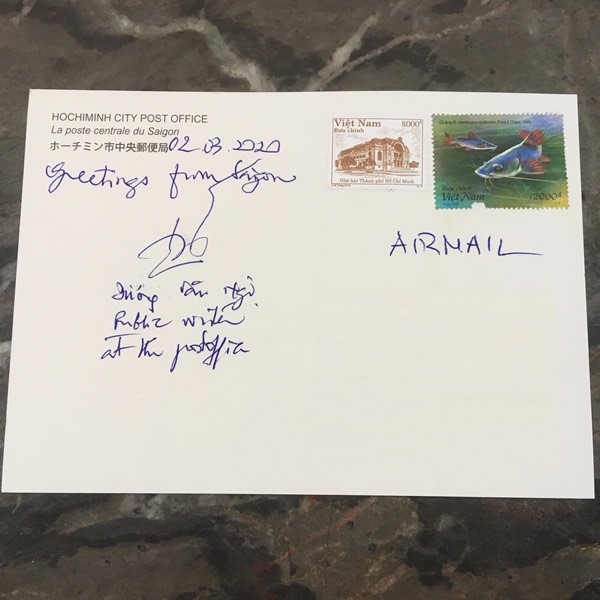 HOCHIMINH CITY POST OFFICE
La poste centrale du Saigon
ホーチミン市中央郵便局 02.03.2020
Greetings from Saigon
Dương Văn Ngộ
Public writer
at the postoffice
Việt Nam
Bưu chính
8000đ
Nhà hát Thành phố Hồ Chí Minh
Bưu chính
Việt Nam
12000đ
AIRMAIL